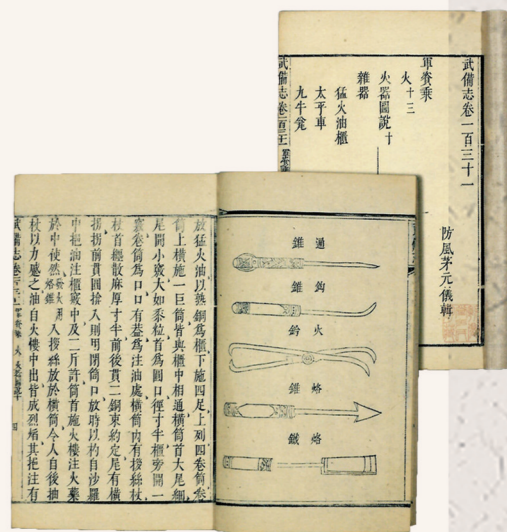 武備志卷一百三十一
防風茅元儀輯
軍資乘
火十三
火器圖說十
雜器
猛火油櫃
太平車
九牛甕
通錐
鈎錐
火鈐
烙錐
烙鐵
放猛火油以熟銅爲櫃下施四足上列四卷筒卷
筒上橫施一巨筒皆與櫃中相通橫筒首大尾細
尾開小竅大如黍粒首爲圓口徑寸半櫃旁開一
竅卷筒爲口口有蓋爲注油處橫筒內有拶絲杖
杖首纏散麻厚寸半前後貫二銅束約定尾有橫
拐拐前貫圓揜入則用閉筒口放時以杓自沙羅
中挹油注櫃竅中及三斤許筒首施火樓注火藥
於中使然發火用烙錐入拶絲放於橫筒令人自後抽
杖以力蹙之油自火樓中出皆成烈焰其挹注有